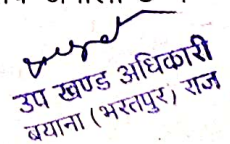 उप खण्ड अधिकारी
बयाना (भरतपुर) राज